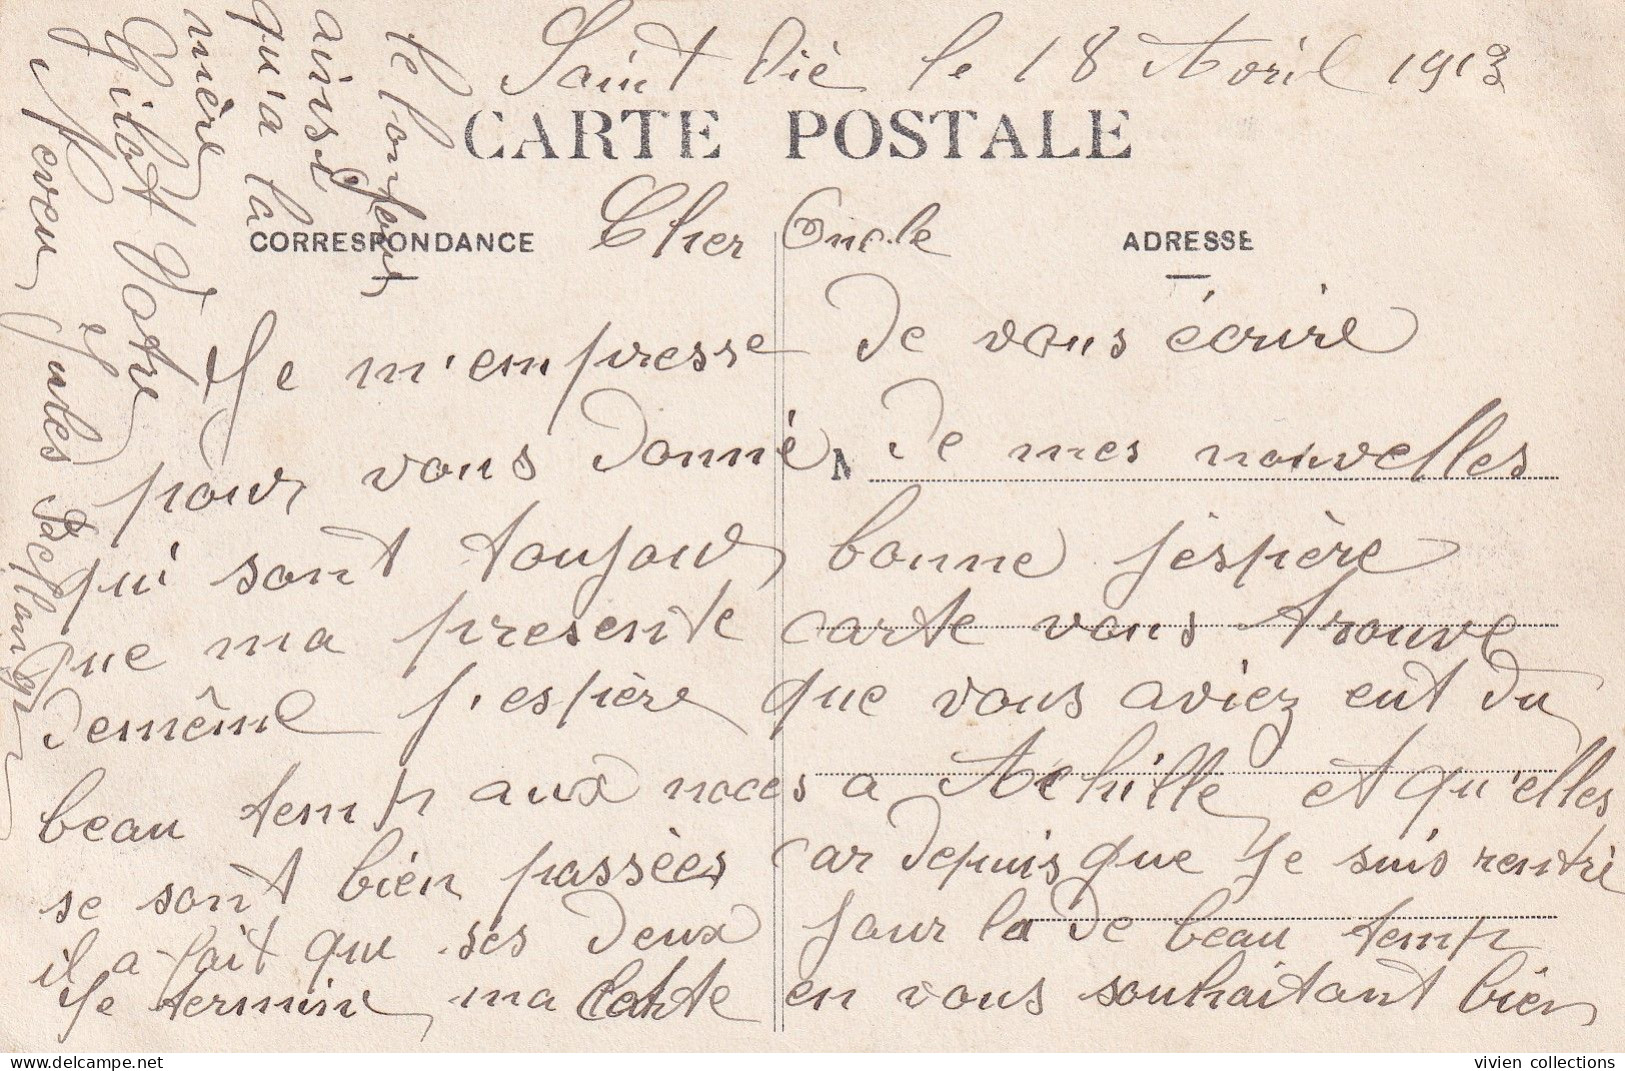 Saint Dié le 18 Avril 1913
CARTE POSTALE
CORRESPONDANCE
ADRESSE
Cher Oncle
Je m'empresse de vous écrire
pour vous donné de mes nouvelles
qui sont toujour bonne j'éspère
que ma presente carte vous trouve
demême j'espère que vous aviez eut du
beau temp aux noces a Achille et qu'elles
se sont bien passèes car depuis que je suis rentré
il a fait que ses deux jour la de beau temp
Je termine ma carte en vous souhaitant bien
le bonjour
ainsi
qu'a la
mère
Gilot Votre
Neveu Jules
vivien collections